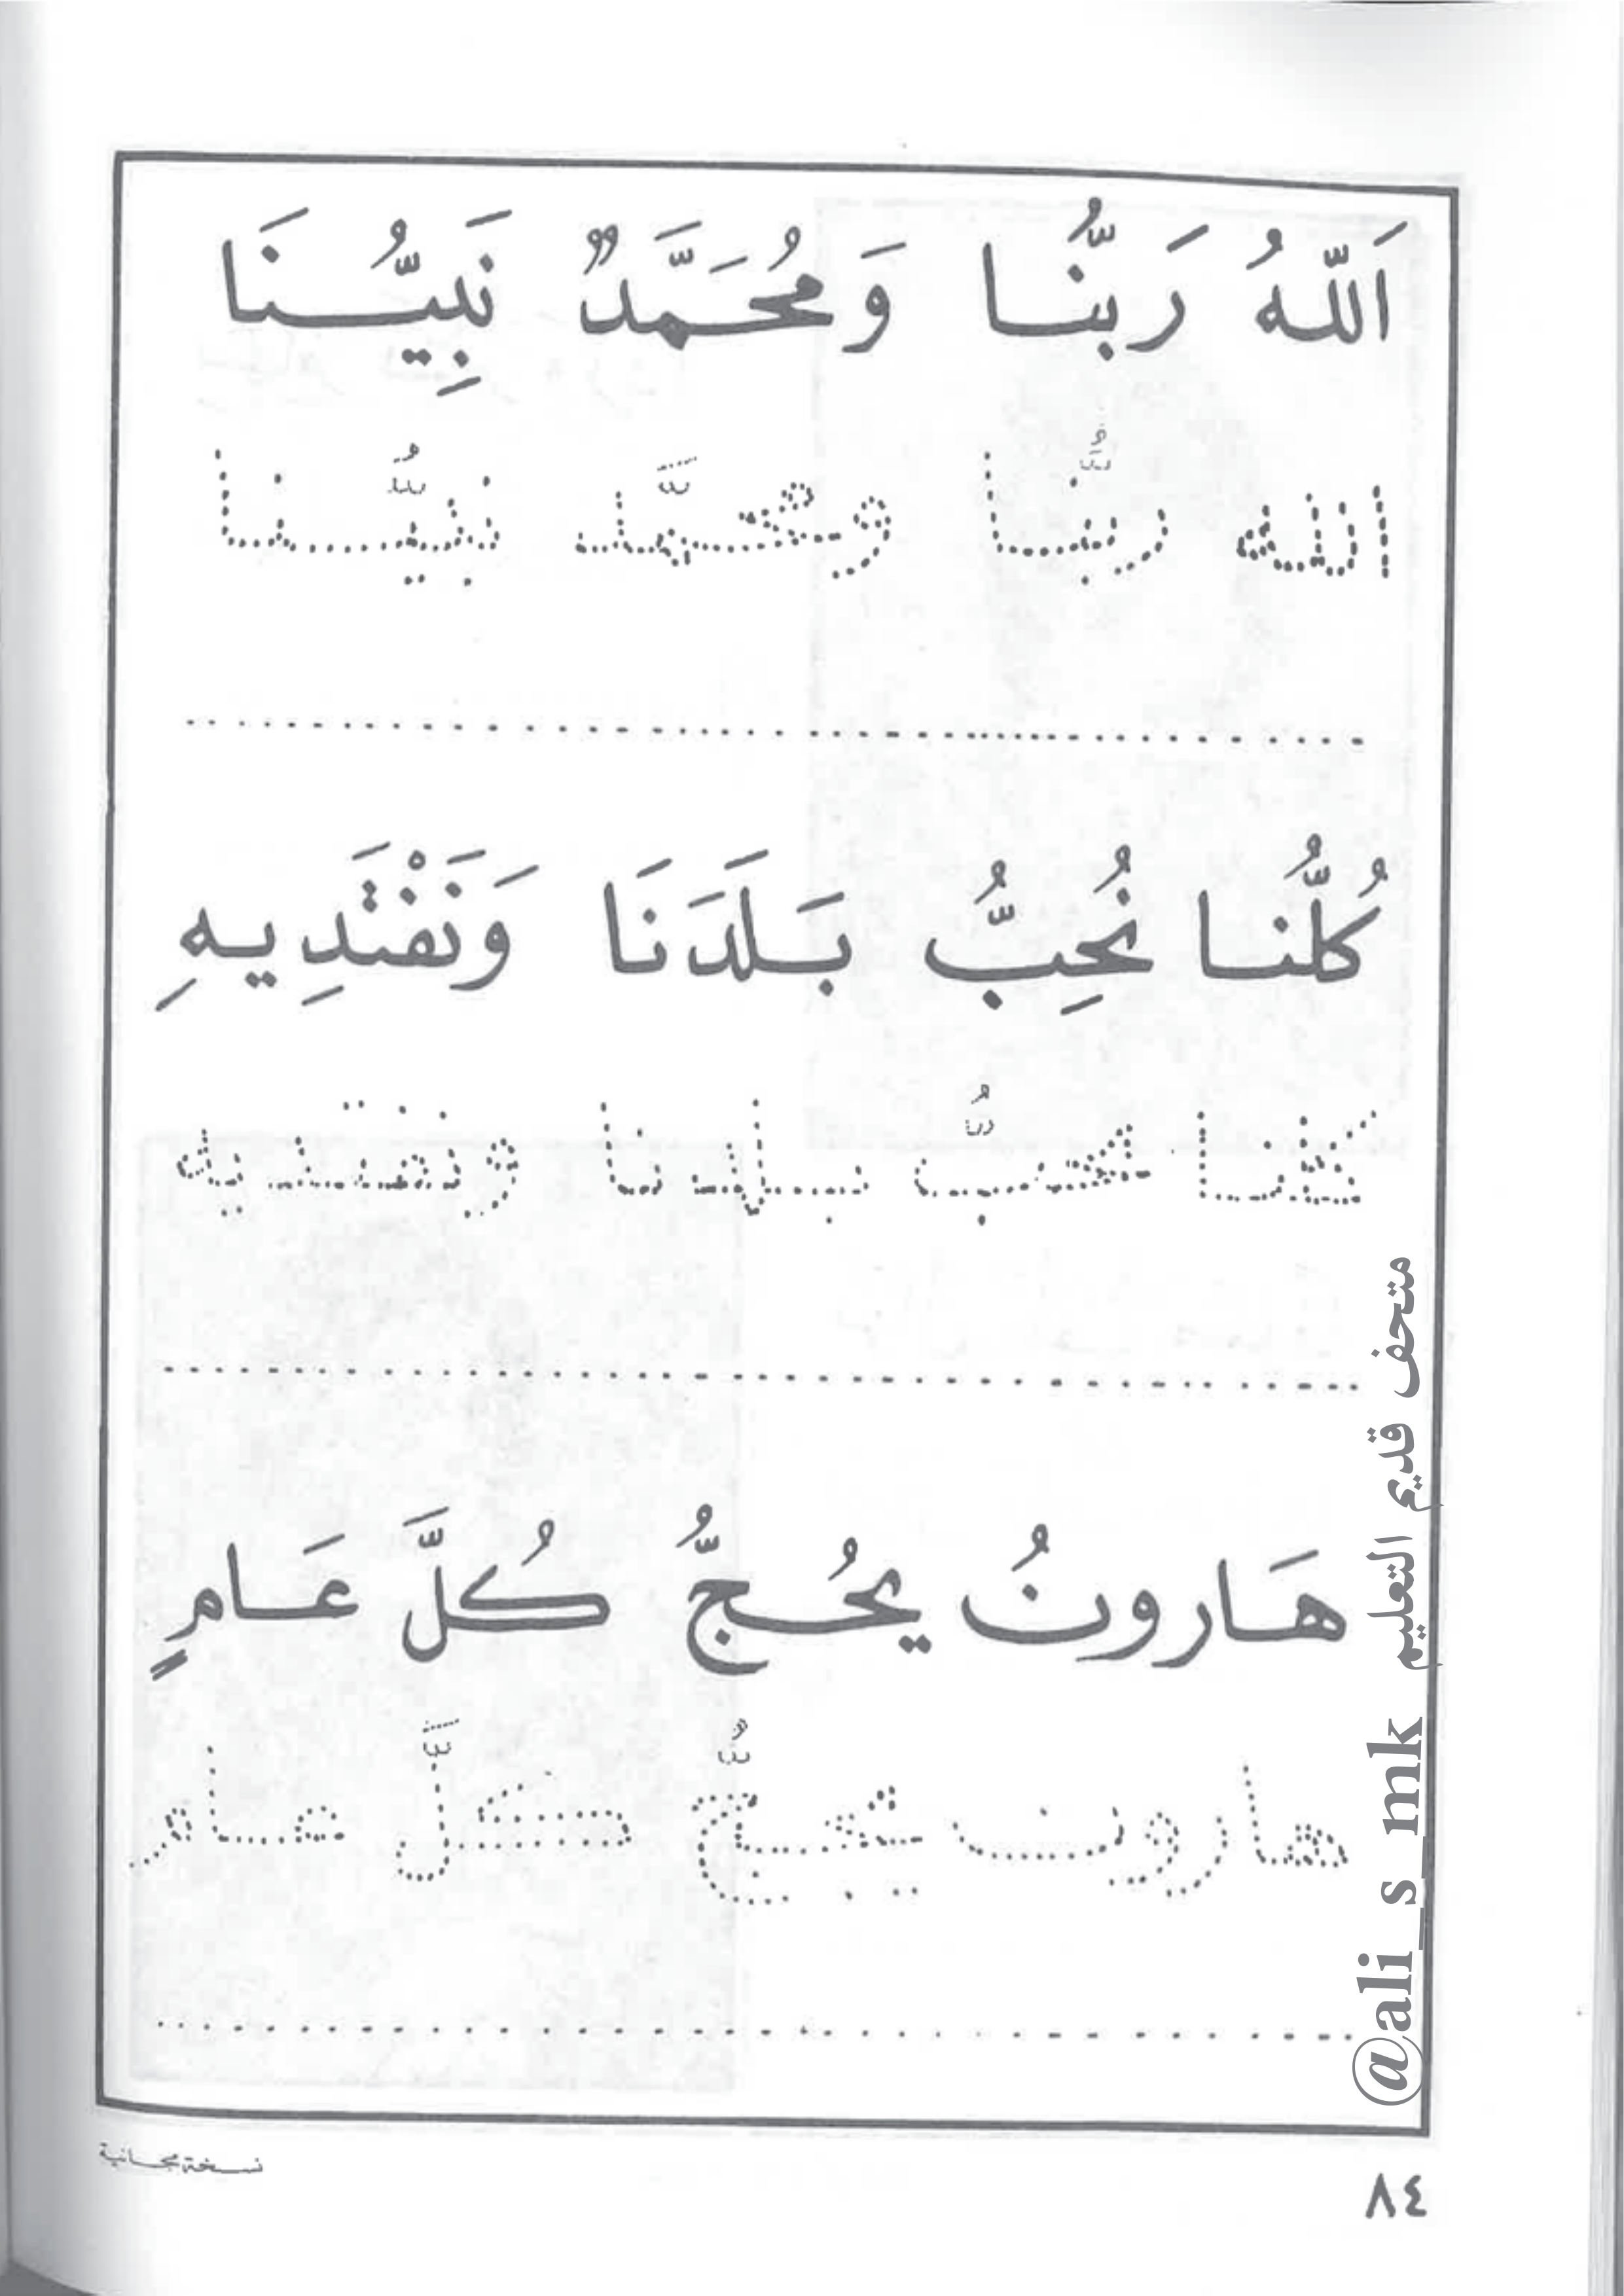 اَللّٰهُ رَبُّنَا وَمُحَمَّدٌ نَبِيُّنَا
الله ربُّنا ومحمَّد نبيُّنا
كُلُّنا نُحِبُّ بَلَدَنَا وَنَفْتَدِيهِ
كلنا نحبُّ بلدنا ونفتديه
هَارونُ يحُجُّ كُلَّ عَامٍ
هارون يحجُّ كلَّ عام
متحف قديم التعليم @ali_s_mk
نسخة مجانية
٨٤